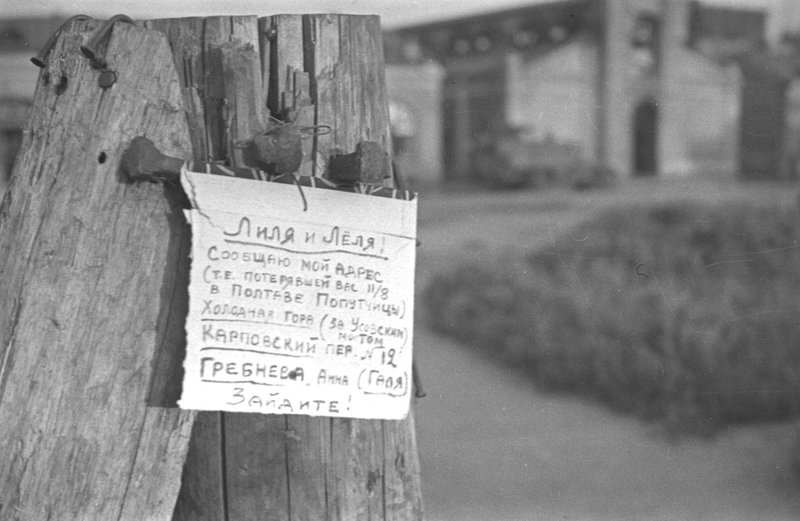 Лиля и Лёля!
Сообщаю мой адрес
(т.е. потерявшей вас 11/8
в Полтаве попутчицы)
Холодная гора (за Усовским
мостом
Карповский пер. № 12
Гребнева Анна (Галя)
Зайдите!